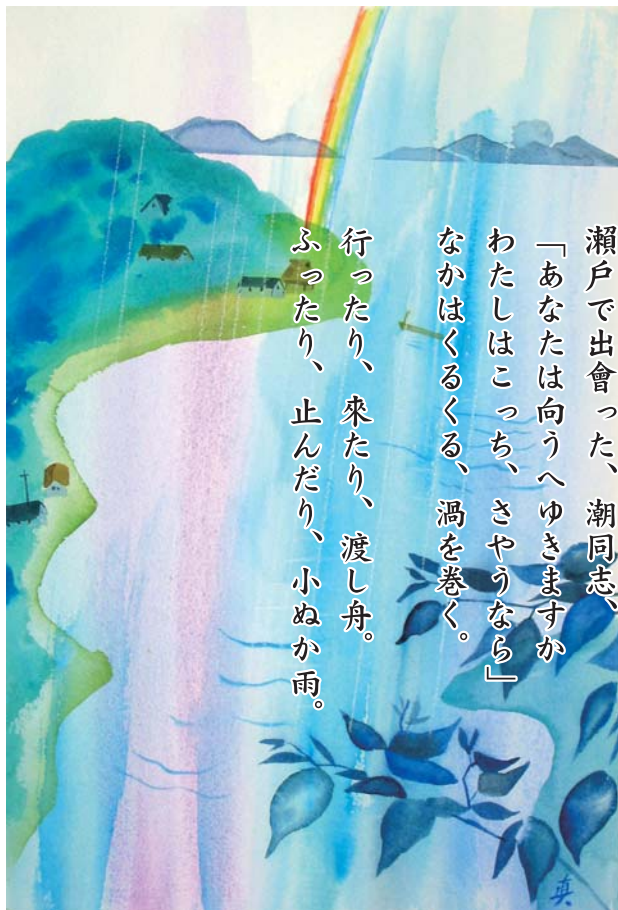 瀬戸で出會った、潮同志、
「あなたは向うへゆきますか
わたしはこっち、さやうなら」
なかはくるくる、渦を巻く。
行ったり、來たり、渡し舟。
ふったり、止んだり、小ぬか雨。
真